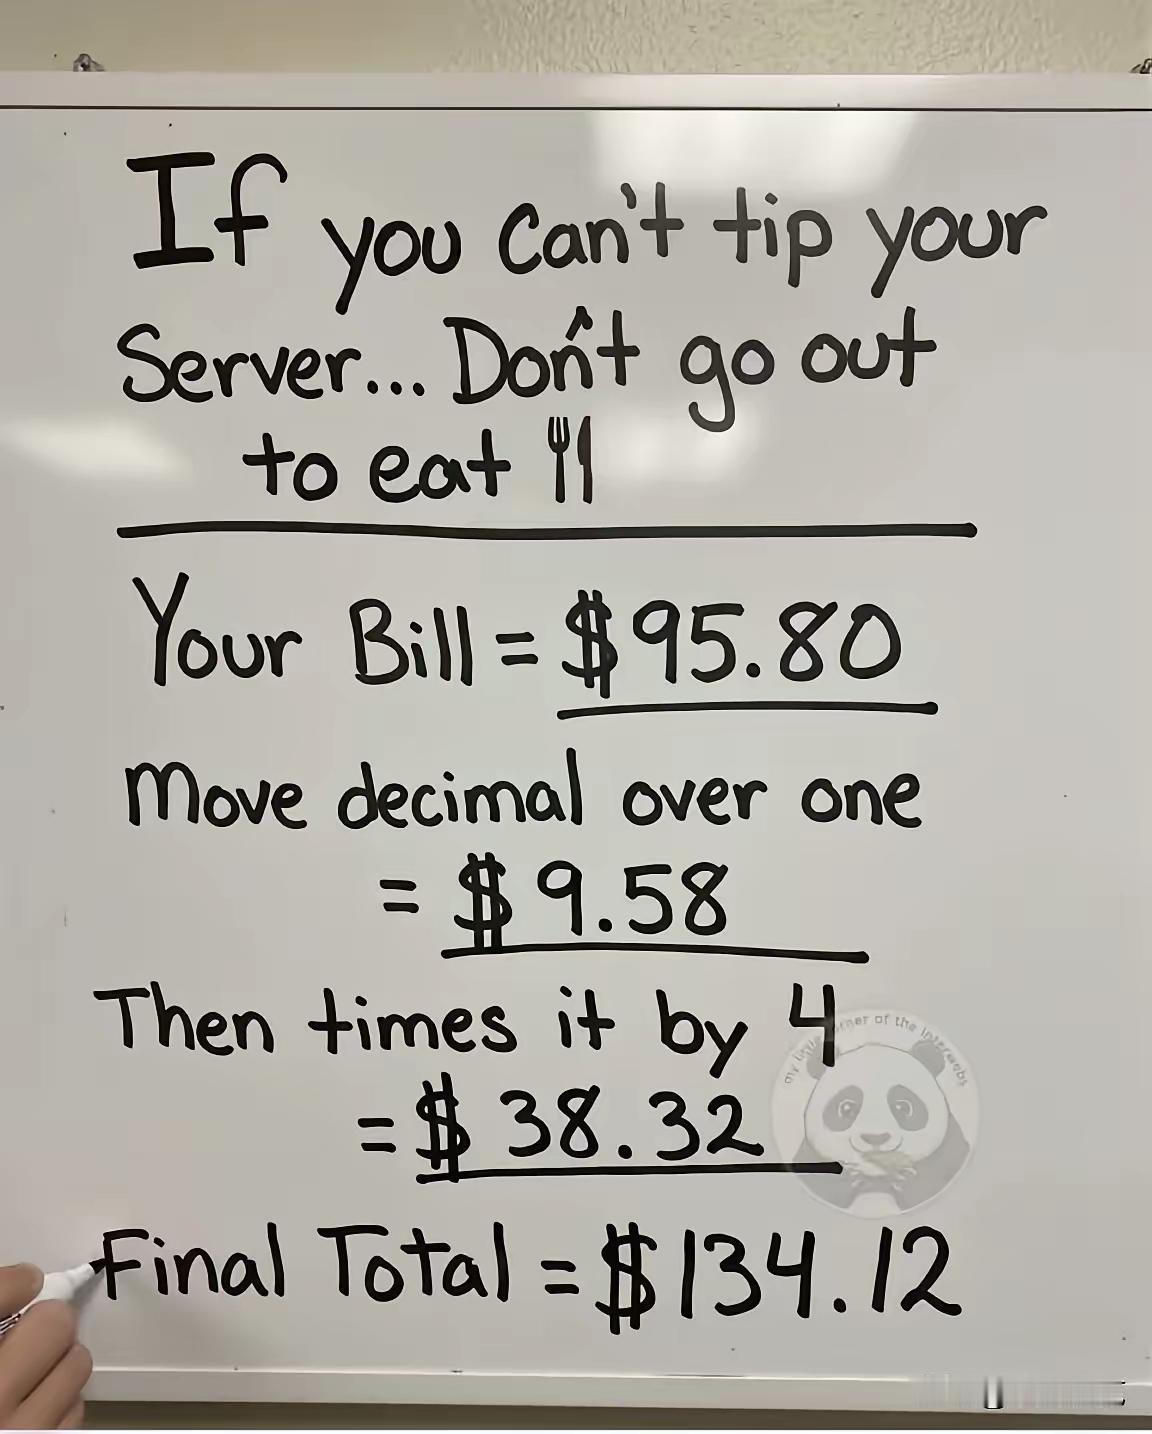 If you can't tip your
Server... Don't go out
to eat
Your Bill = $95.80
Move decimal over one
= $9.58
Then times it by 4
= $38.32
my little corner of the interwebs
Final Total = $134.12